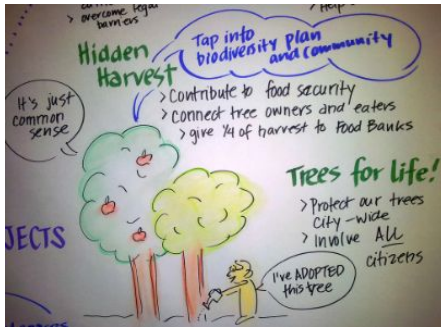 > overcome legal
barriers
Tap into
biodiversity plan
and community
Hidden
Harvest
It's just
common
sense
> Contribute to food security
> connect tree owners and eaters
> give 1/4 of harvest to Food Banks
Trees for life!
> Protect our trees
city-wide
> Involve ALL
citizens
JECTS
I've ADOPTED
this tree